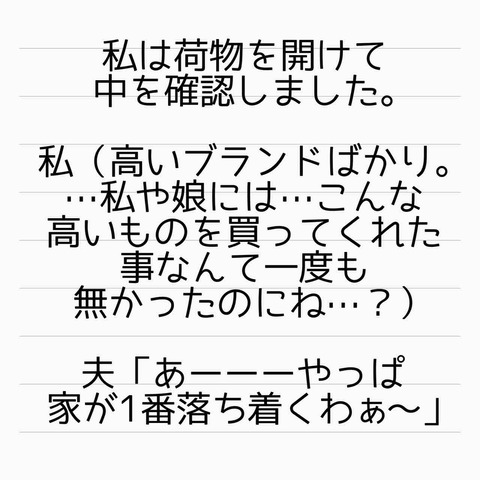 私は荷物を開けて
中を確認しました。
私（高いブランドばかり。
…私や娘には…こんな
高いものを買ってくれた
事なんて一度も
無かったのにね…？）
夫「あーーーやっぱ
家が1番落ち着くわぁ〜」